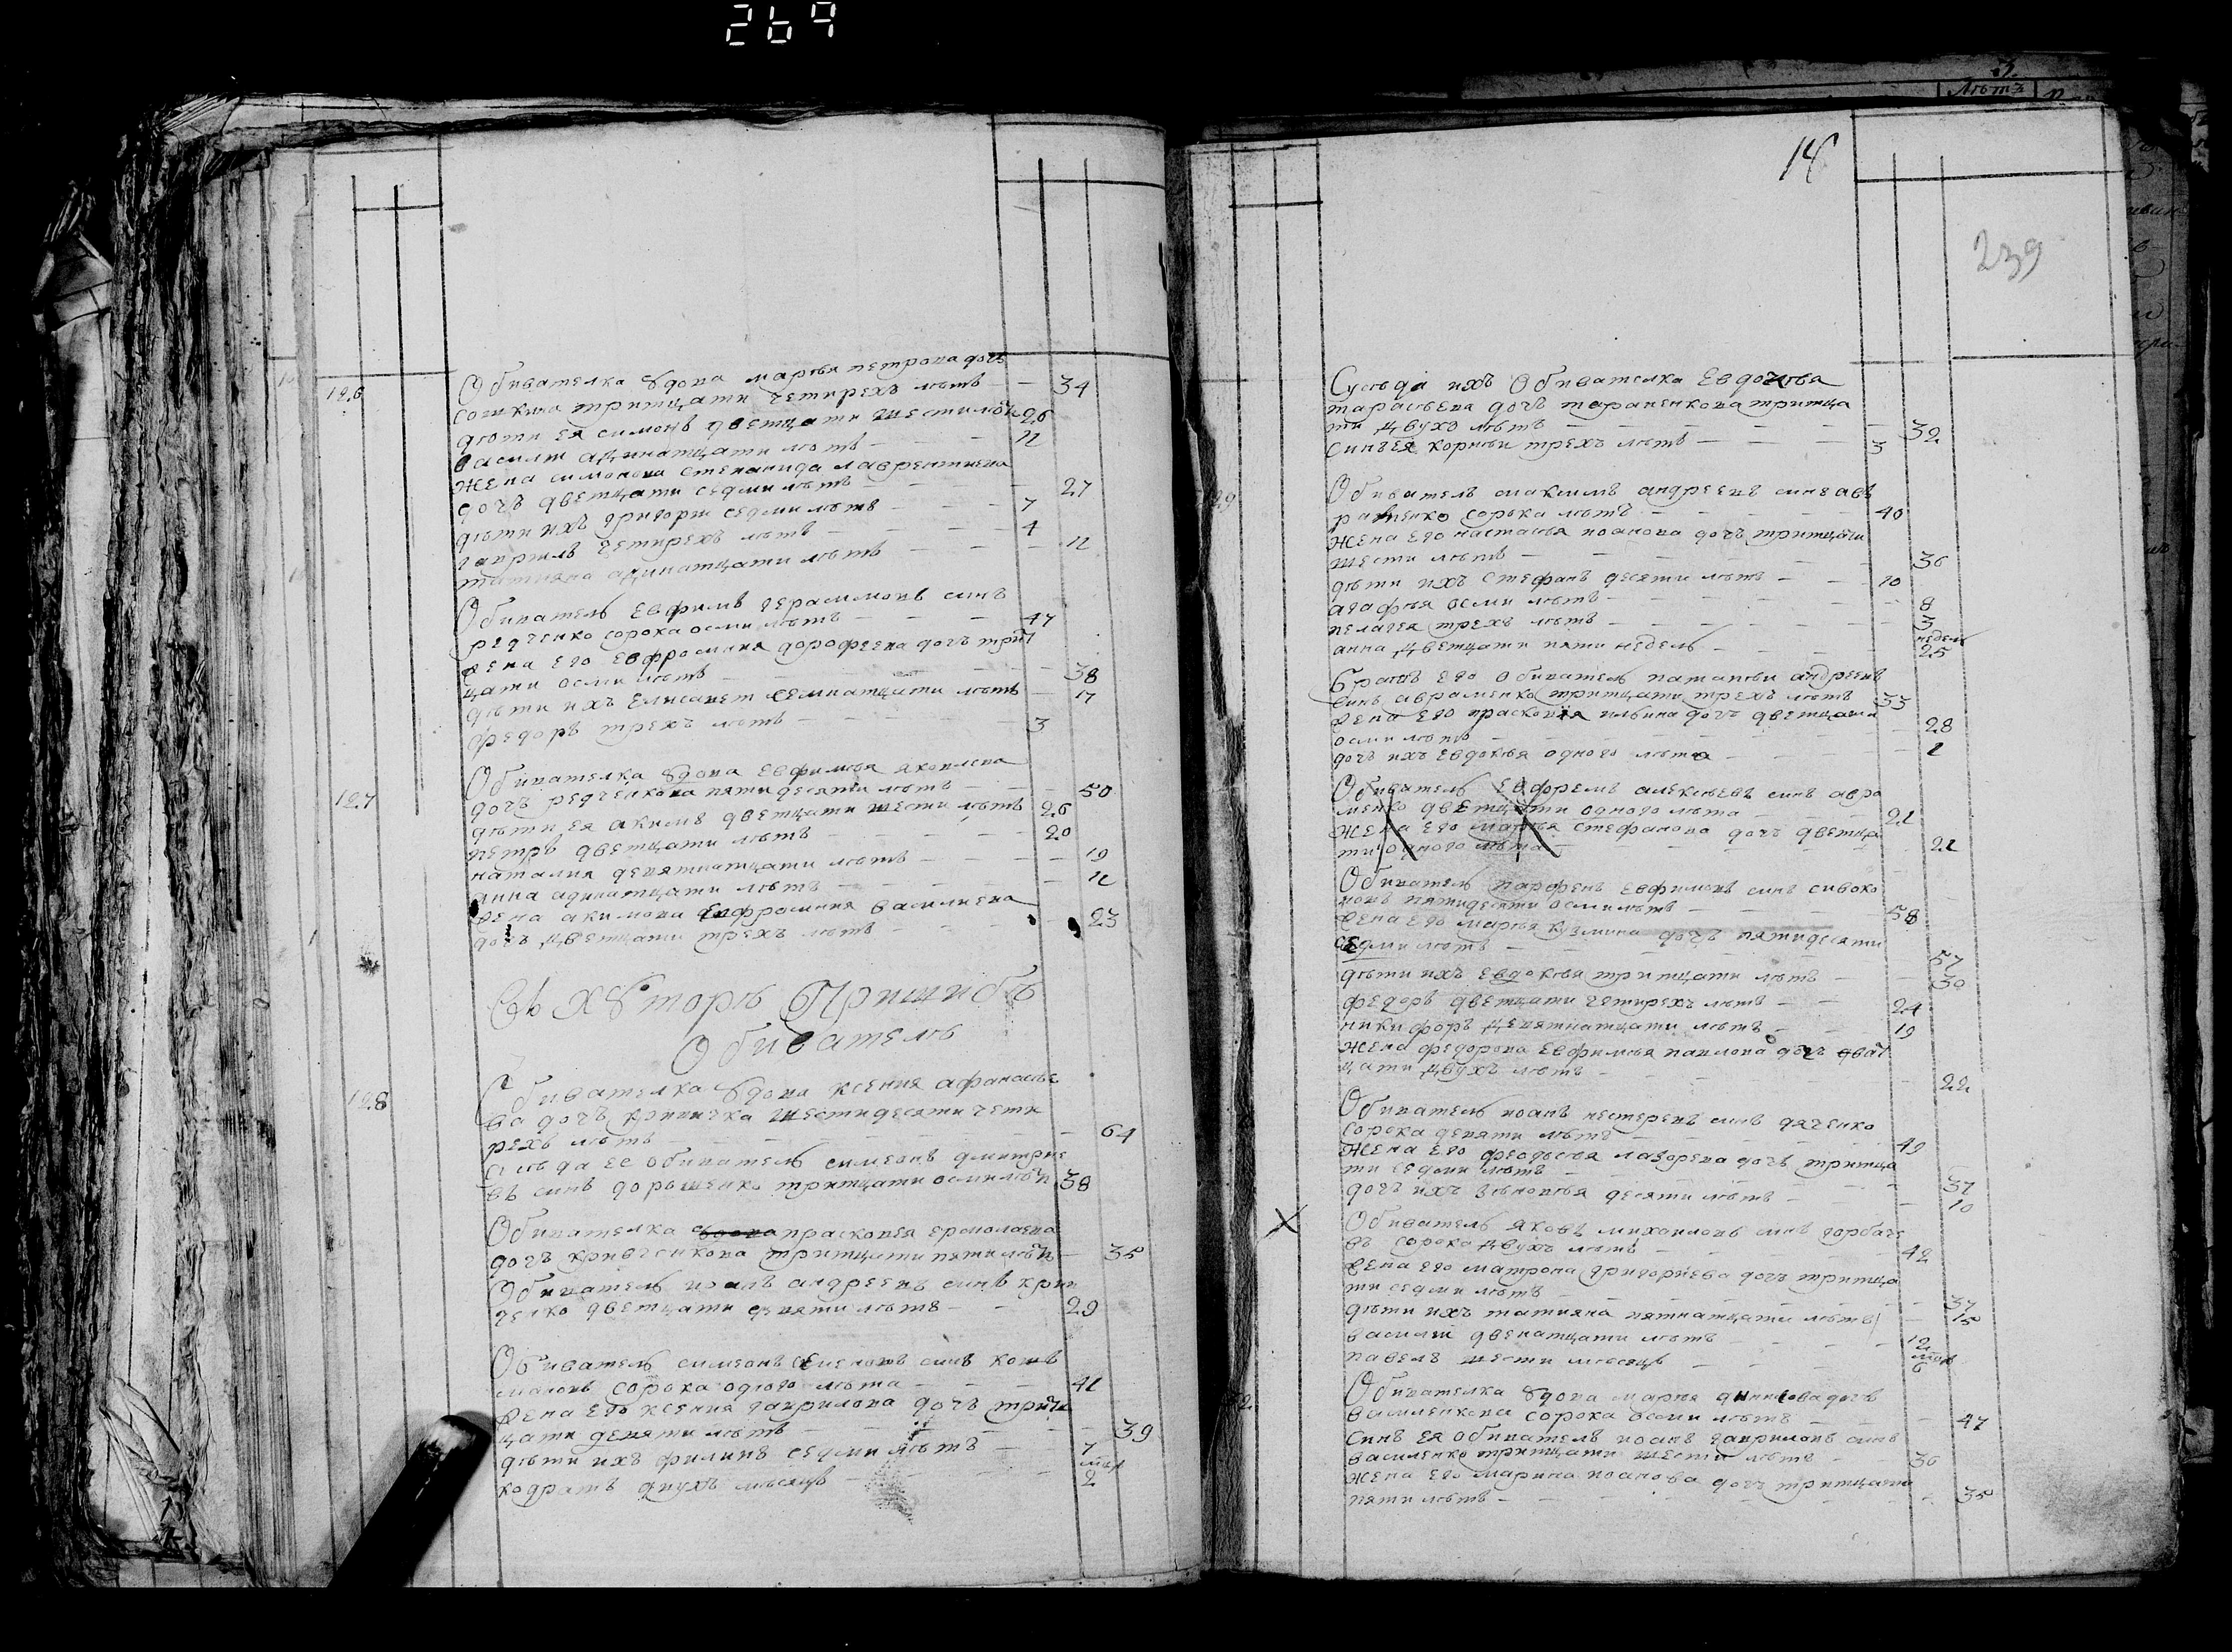 269
126
Обивателка вдова марья петрова дочь
сошкина тритцати четирехъ летъ — — 34
дети ея симонъ дветцати шести летъ 26
василй адинатцати летъ — — — 11
жена симонова степанида лаврентиева
дочъ дветцати седми летъ — — — 27
дети ихъ григорй седми летъ — — 7
гаврилъ четирехъ летъ — — — 4
татияна адинатцати летъ — — — 11
Обиватель Евфимъ герасимовъ синъ
редченко сорока осми летъ — — — 47
жена его Евфросиния дорофеева дочъ трит
цати осми летъ — — — 38
дети ихъ Елисавет семнатцати летъ 17
федоръ трехъ летъ — — — 3
127
Обивателка вдова Евфимья яковлева
дочъ редченкова пятидесяти летъ — — 50
дети ея акимъ дветцати шести летъ 26
петръ дветцати летъ — — — 20
наталия девятнатцати летъ — — — 19
анна адинатцати летъ — — — 11
жена акимова Евфросиния василиева
дочъ дветцати трехъ летъ — — 23
Въ хуторе Пришибъ
Обиватель
128
Обивателка вдова ксения афанасье
ва дочъ кривичка шестидесяти чети
рехъ летъ — — — 64
суседа ее Обиватель симеонъ дмитрие
въ синъ дорошенко тритцати осми летъ 38
Обивателка вдова прасковея ермолаева
дочъ кривченкова тритцати пяти летъ — 35
Обиватель иоанъ андреевъ синъ крив
ченко дветцати девяти летъ — — 29
Обиватель симеонъ семеновъ синъ
сорока одного лета — — — 41
жена его ксения гаврилова дочъ трит
цати девяти летъ — — — 39
дети ихъ филипъ седми летъ — 7
кодратъ двухъ месяцъ — — 2
14
239
Суседа ихъ Обивателка Евдокея
тарасьева дочъ тараненкова тритца
ти двухъ летъ — — — 32
синъ ея корней трехъ летъ — — — 3
129
Обиватель максимъ андреевъ синъ ав
раменко сорока летъ — — — 40
жена его настасья иоанова дочъ тритцати
шести летъ — — — 36
дети ихъ стефанъ десяти летъ — — 10
агафья осми летъ — — — 8
пелагея трехъ летъ — — — 3
анна дветцати пяти недель — — недель 25
Братъ его Обиватель патапей андреевъ
синъ авраменко тритцати трехъ летъ 33
жена его прасковия илвина дочъ дветцати
осми летъ — — — 28
дочъ ихъ Евдокея одного лета — — 1
Обиватель Евфремъ алексеевъ синъ авра
менко дветцати одного лета — — 21
жена его марья стефанова дочъ дветца
ти одного лета — — — 21
Обиватель парфенъ Евфимовъ синъ сивоко
нонъ пятидесяти осми летъ — — 58
жена его марья кузмина дочъ пятидесяти
седми летъ — — — 57
дети ихъ Евдокея тритцати летъ — 30
федоръ дветцати четирехъ летъ — — 24
никифоръ девятнатцати летъ — — 19
жена федорова Евфимья павлова дочъ дват
цати двухъ летъ — — — 22
Обиватель иоанъ нестеревъ синъ дяченко
сорока девяти летъ — — — 49
жена его феодосья лазорева дочъ тритца
ти седми летъ — — — 37
дочъ ихъ зеновья десяти летъ — — 10
Обиватель яковъ михаиловъ синъ горбаче
въ сорока двухъ летъ — — — 42
жена его матрона григориева дочъ тритца
ти седми летъ — — — 37
дети ихъ татияна пятнатцати летъ — 15
василий двенатцати летъ — — — 12
павелъ шести месяцъ — — — 6
Обивателка вдова марья дочъ
василенкова сорока осми летъ — — 47
Синъ ея Обиватель иоанъ гавриловъ синъ
василенко тритцати шести летъ — 36
жена его марина иоанова дочъ тритцати
пяти летъ — — — 35